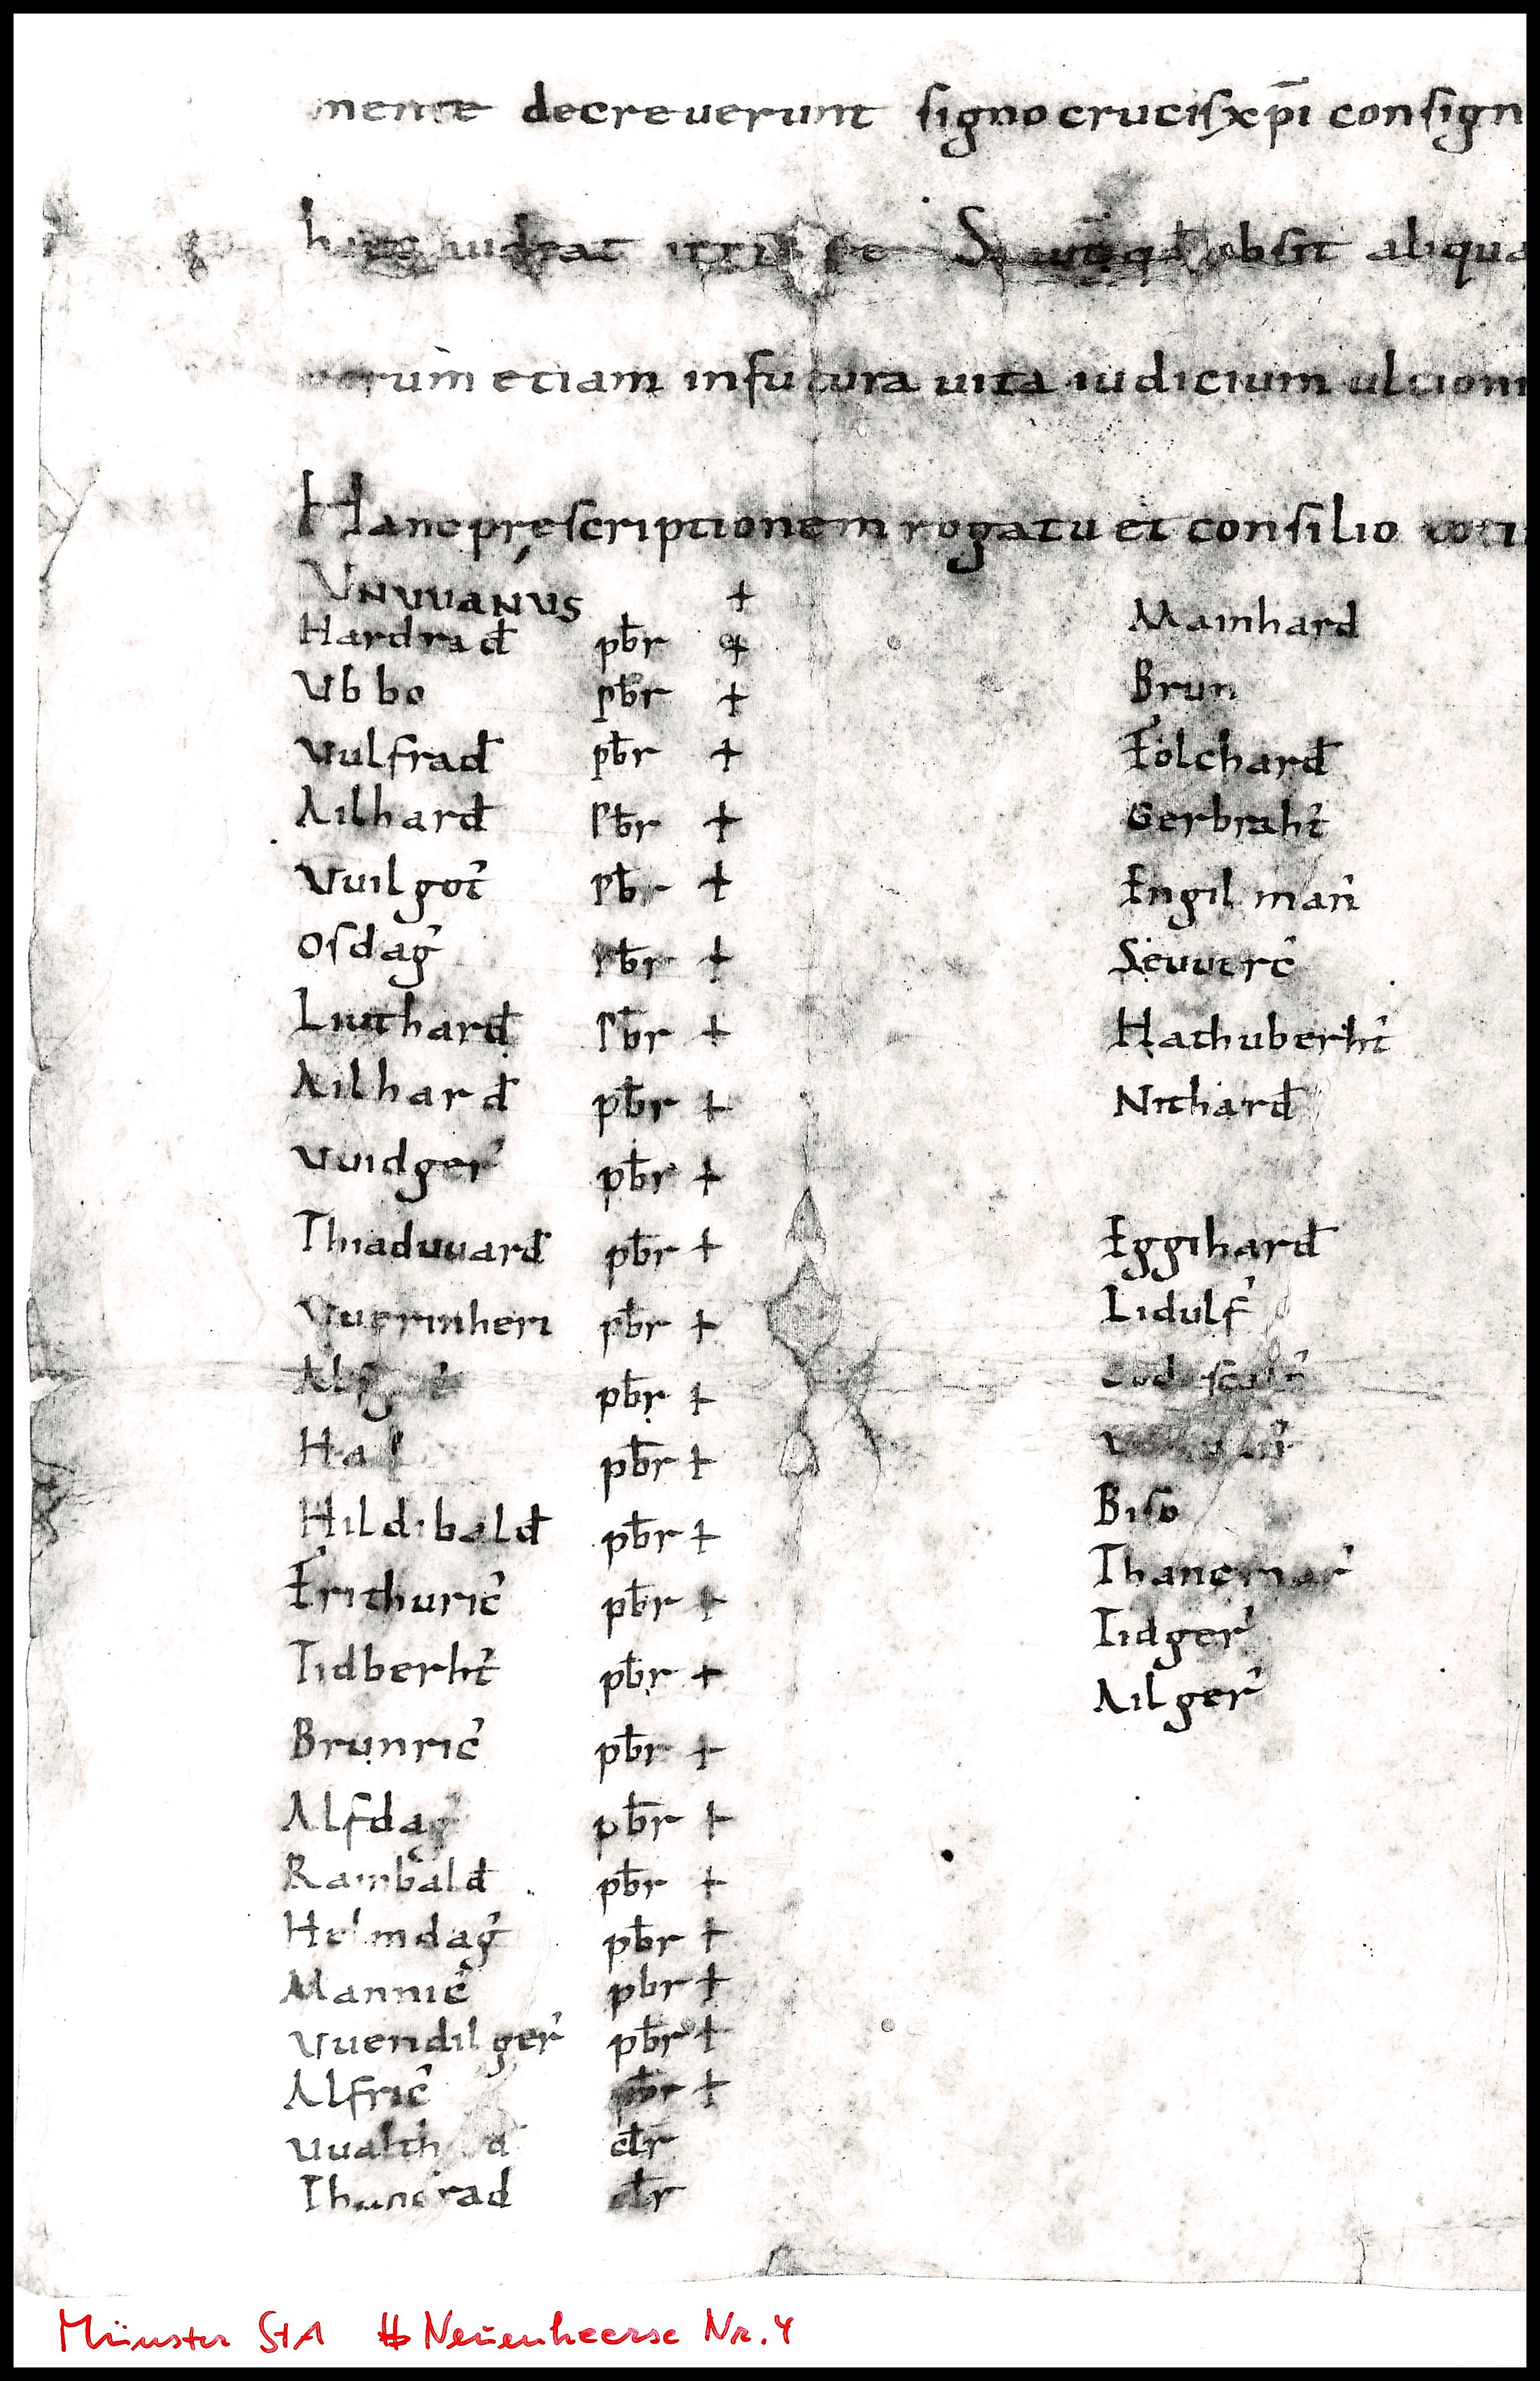 mente decreuerunt signo crucis xp̄i consign
obsit aliqua
uerum etiam in futura uita iudicium ultioni
Hanc prescriptionem rogatu et consilio toti
Vnuuanus +
Hardrad pbr +
Vbbo pbr +
Vulfrad pbr +
Ailhard pbr +
Vuilgot pbr +
Osdag pbr +
Liuthard pbr +
Ailhard pbr +
Vuidger pbr +
Thiaduuard pbr +
Vuerinheri pbr +
pbr +
pbr +
Hildibald pbr +
Frithuric pbr +
Tidberht pbr +
Brunric pbr +
Alfdag pbr +
Rainbald pbr +
Helmdag pbr +
Mannic pbr +
Vuendilger pbr +
Alfric pbr +
clr
Thancrad clr
Mainhard
Brun
Folchard
Gerbraht
Engilman
Sieuuerc
Hathuberht
Nithard
Eggihard
Lidulf
Biso
Thancmar
Tidger
Ailger
Münster StA Neuenheerse Nr. 4